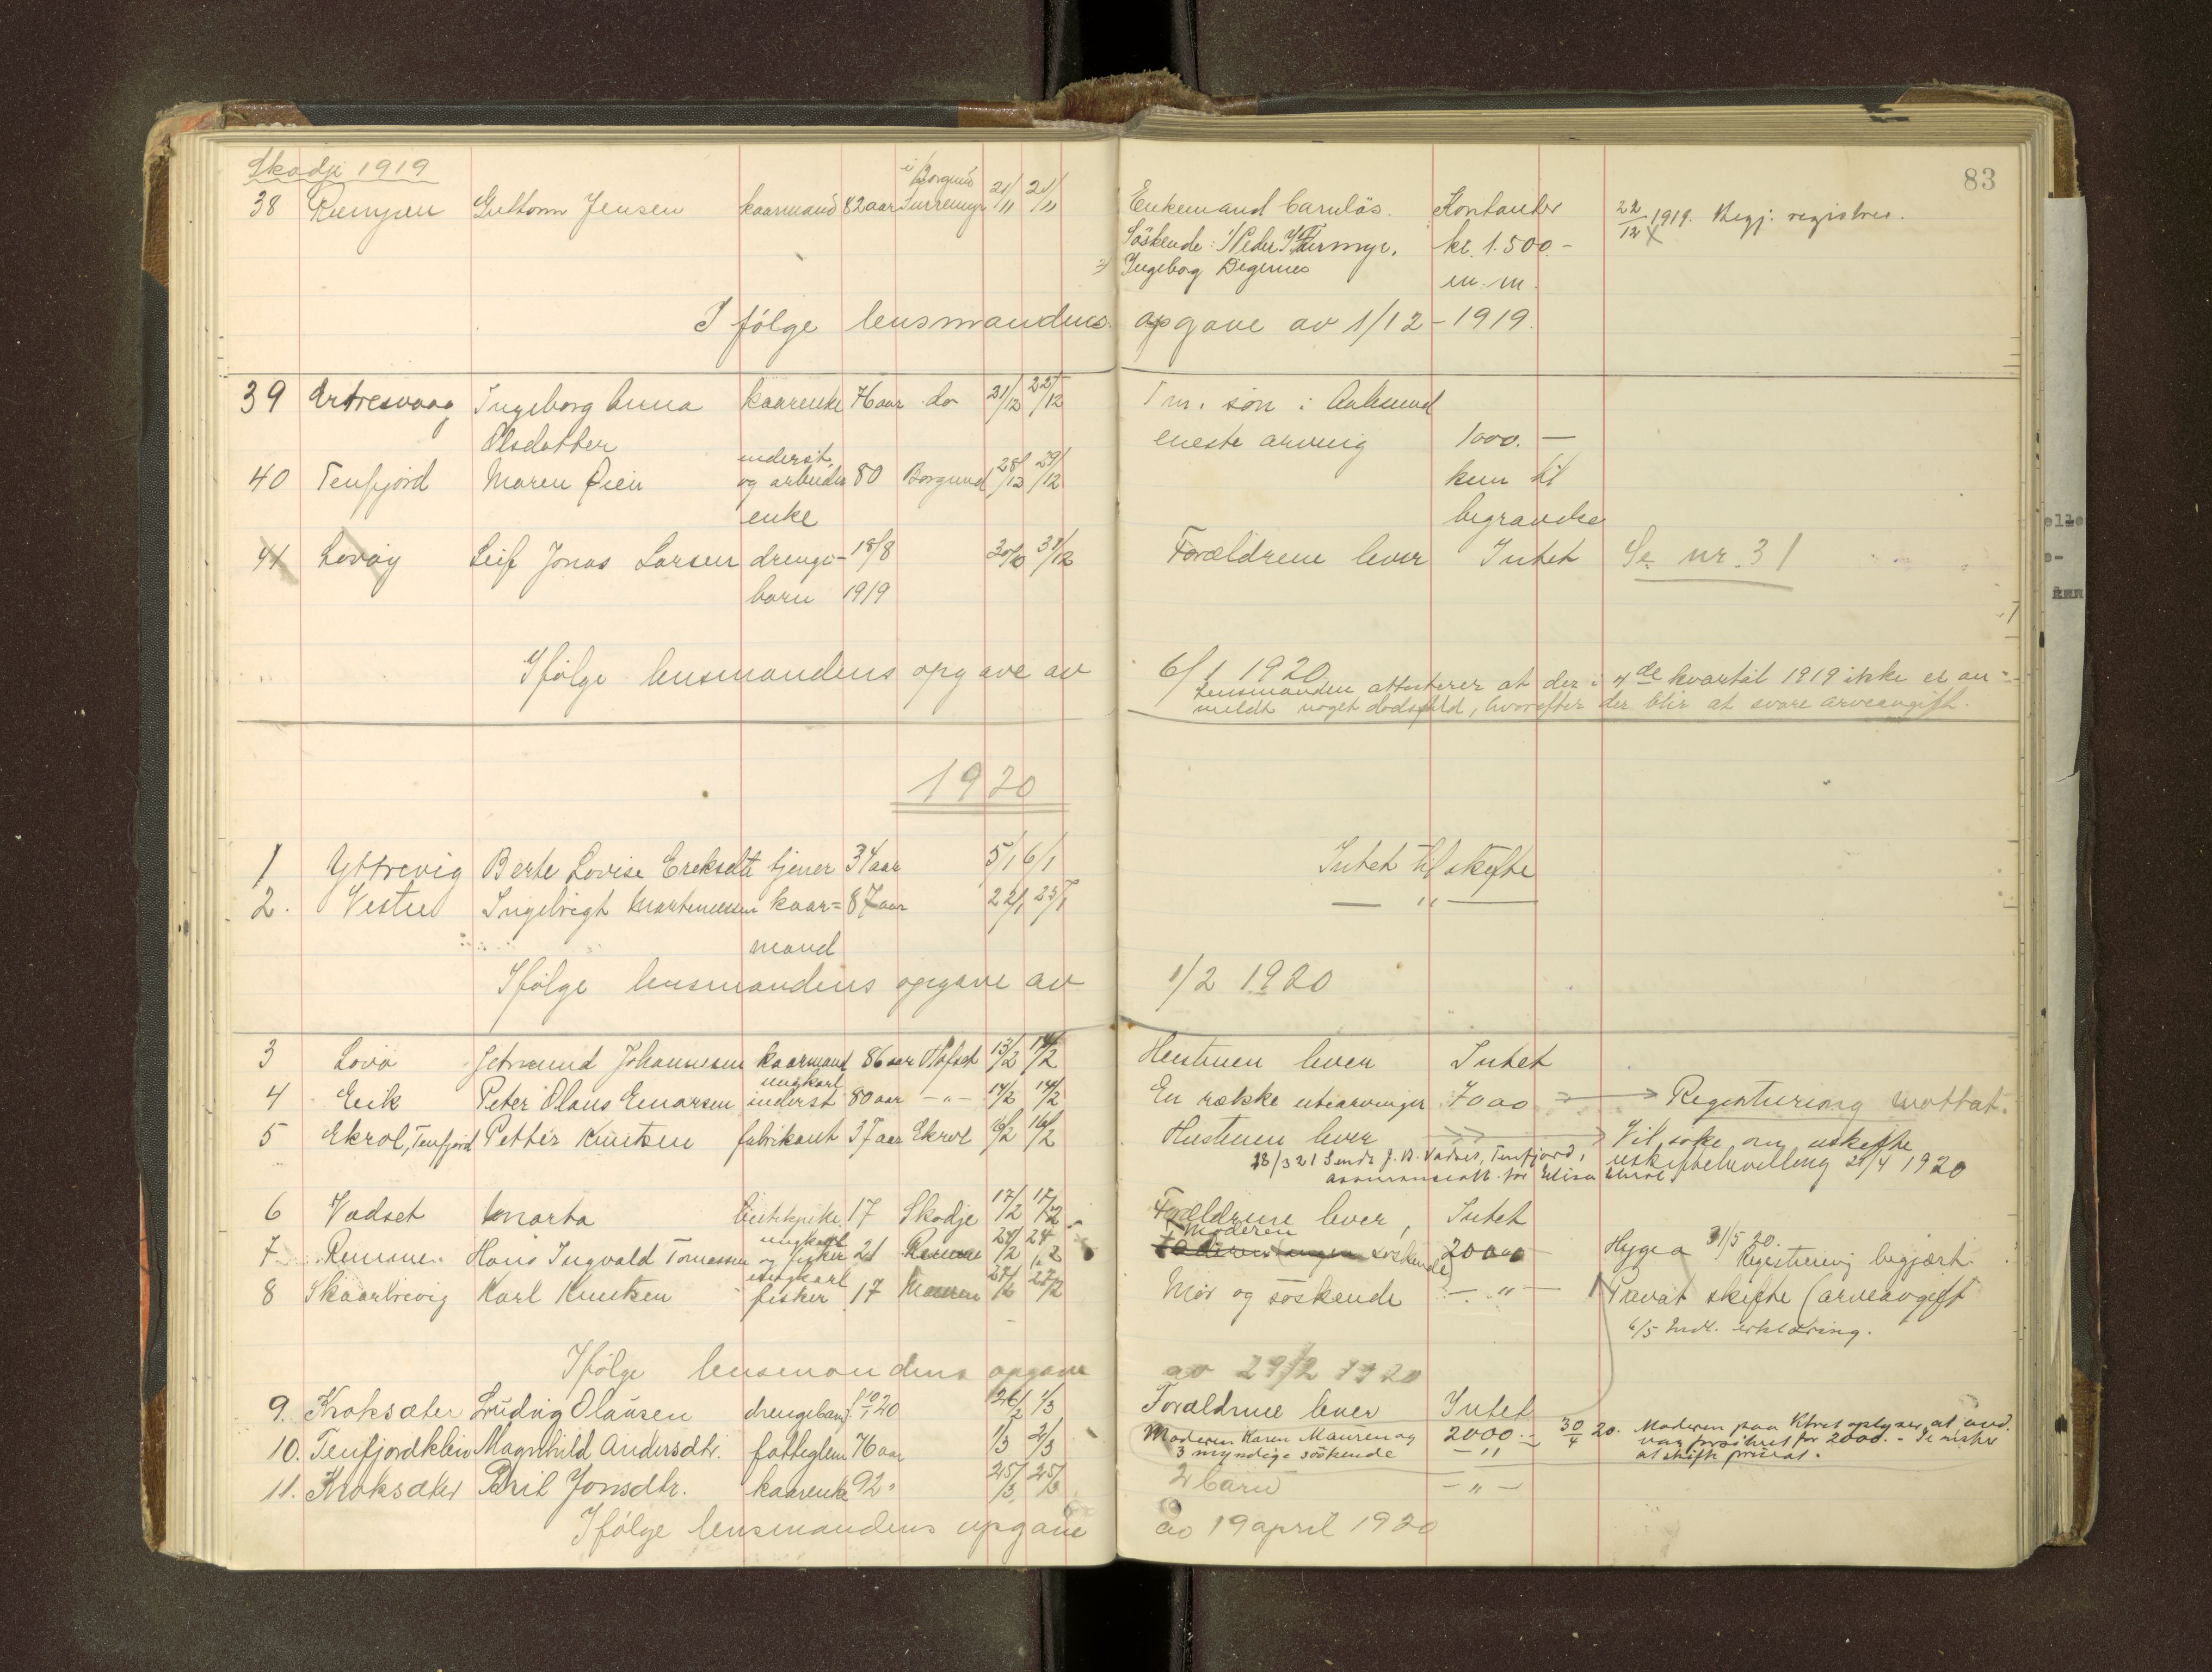 Skodje 1919
83
i Borgund
38 Guttorm Jensen kaarmand 82 aar Surremyr 21/11 21/11 Enkemand barnløs. Kontanter 22/12 1919. Begj: registrer.
Søskende: 1/ Peder Surmyr, kr. 1.500.-
2/ Ingeborg Digernes m.m.
I følge lensmandens opgave av 1/12-1919.
39 Urtresvaag Ingeborg Anna kaarenke 76 aar do 21/12 22/12 1 m. søn i Aalesund
Olsdatter eneste arving 1000.-
inderst
40 Tenfjord Maren Øien og arbeider 80 Borgund 28/12 29/12 kun til
enke begravelse
41 Lovåg Leif Jonas Larsen drenge- 18/8 Forældrene lever Intet Se nr. 31
barn 1919
Ifølge lensmandens opgave av 6/1 1920
Lensmanden attesterer at der i 4de kvartal 1919 ikke er an-
meldt noget dødsfald, hvorefter der blir at svare arveavgift.
1920
1 Yttrevig Berte Lovise Ereksdtt tjener 34 aar 5/1 6/1 Intet til skifte
2. Vestre Ingebrigt Martinussen kaar= 87 aar 22/1 23/1 — " —
mand
Ifølge lensmandens opgave av 1/2 1920
3 Lovø Getmund Johannesen kaarmand 86 aar 13/2 14/2 Hustruen lever Intet
ungkarl
4 Eik Peter Olaus Einarsen inderst 80 aar -"- 14/2 14/2 En rekke utearvinger 7000 Registrering mottat.
5 Ekrol, Tenfjord Petter Knutsen fabrikant 37 aar Ekrol 16/2 16/2 Hustruen lever Vil søke om uskifte
28/3 21 Sendt J. B. Vadset, Tenfjord, uskiftebevilling 21/4 1920
assuranseatt. for Elisa Ekrol
6 Vadset Marta 17 Skodje 17/2 17/2 Forældrene lever, Intet
ungkarl Moderen
7 Remme Hans Ingvald Tomassen og fisker 21 Remme 24/2 24/2 2000 Hygea 31/5 20. Registrering begjært.
ungkarl
8 Skaarbrevig Karl Knutsen fisker 17 27/2 27/2 Mor og søskende — " — Privat skifte (arveavgift
6/5 Indl. erklæring.
Ifølge lensmandens opgave av 29/2 1920
9. Kroksæter Ludvig Olausen drengebarn f 10/1 20 26/2 1/3 Forældrene lever Intet
10. Tenfjordkleiv Magnhild Andersdtr. fattiglem 76 aar 1/3 2/3 Moderen Karen Mauren og 2000.- 30/4 20. Moderen paa Ktret oplyser, at avd.
3 myndige søskende -"- var forsikret for 2000.- De ønsker
at skifte privat.
11. Kroksæter Beril Jonsdtr. kaarenke 92 " 25/3 25/3 2 barn -"-
Ifølge lensmandens opgave av 19 april 1920